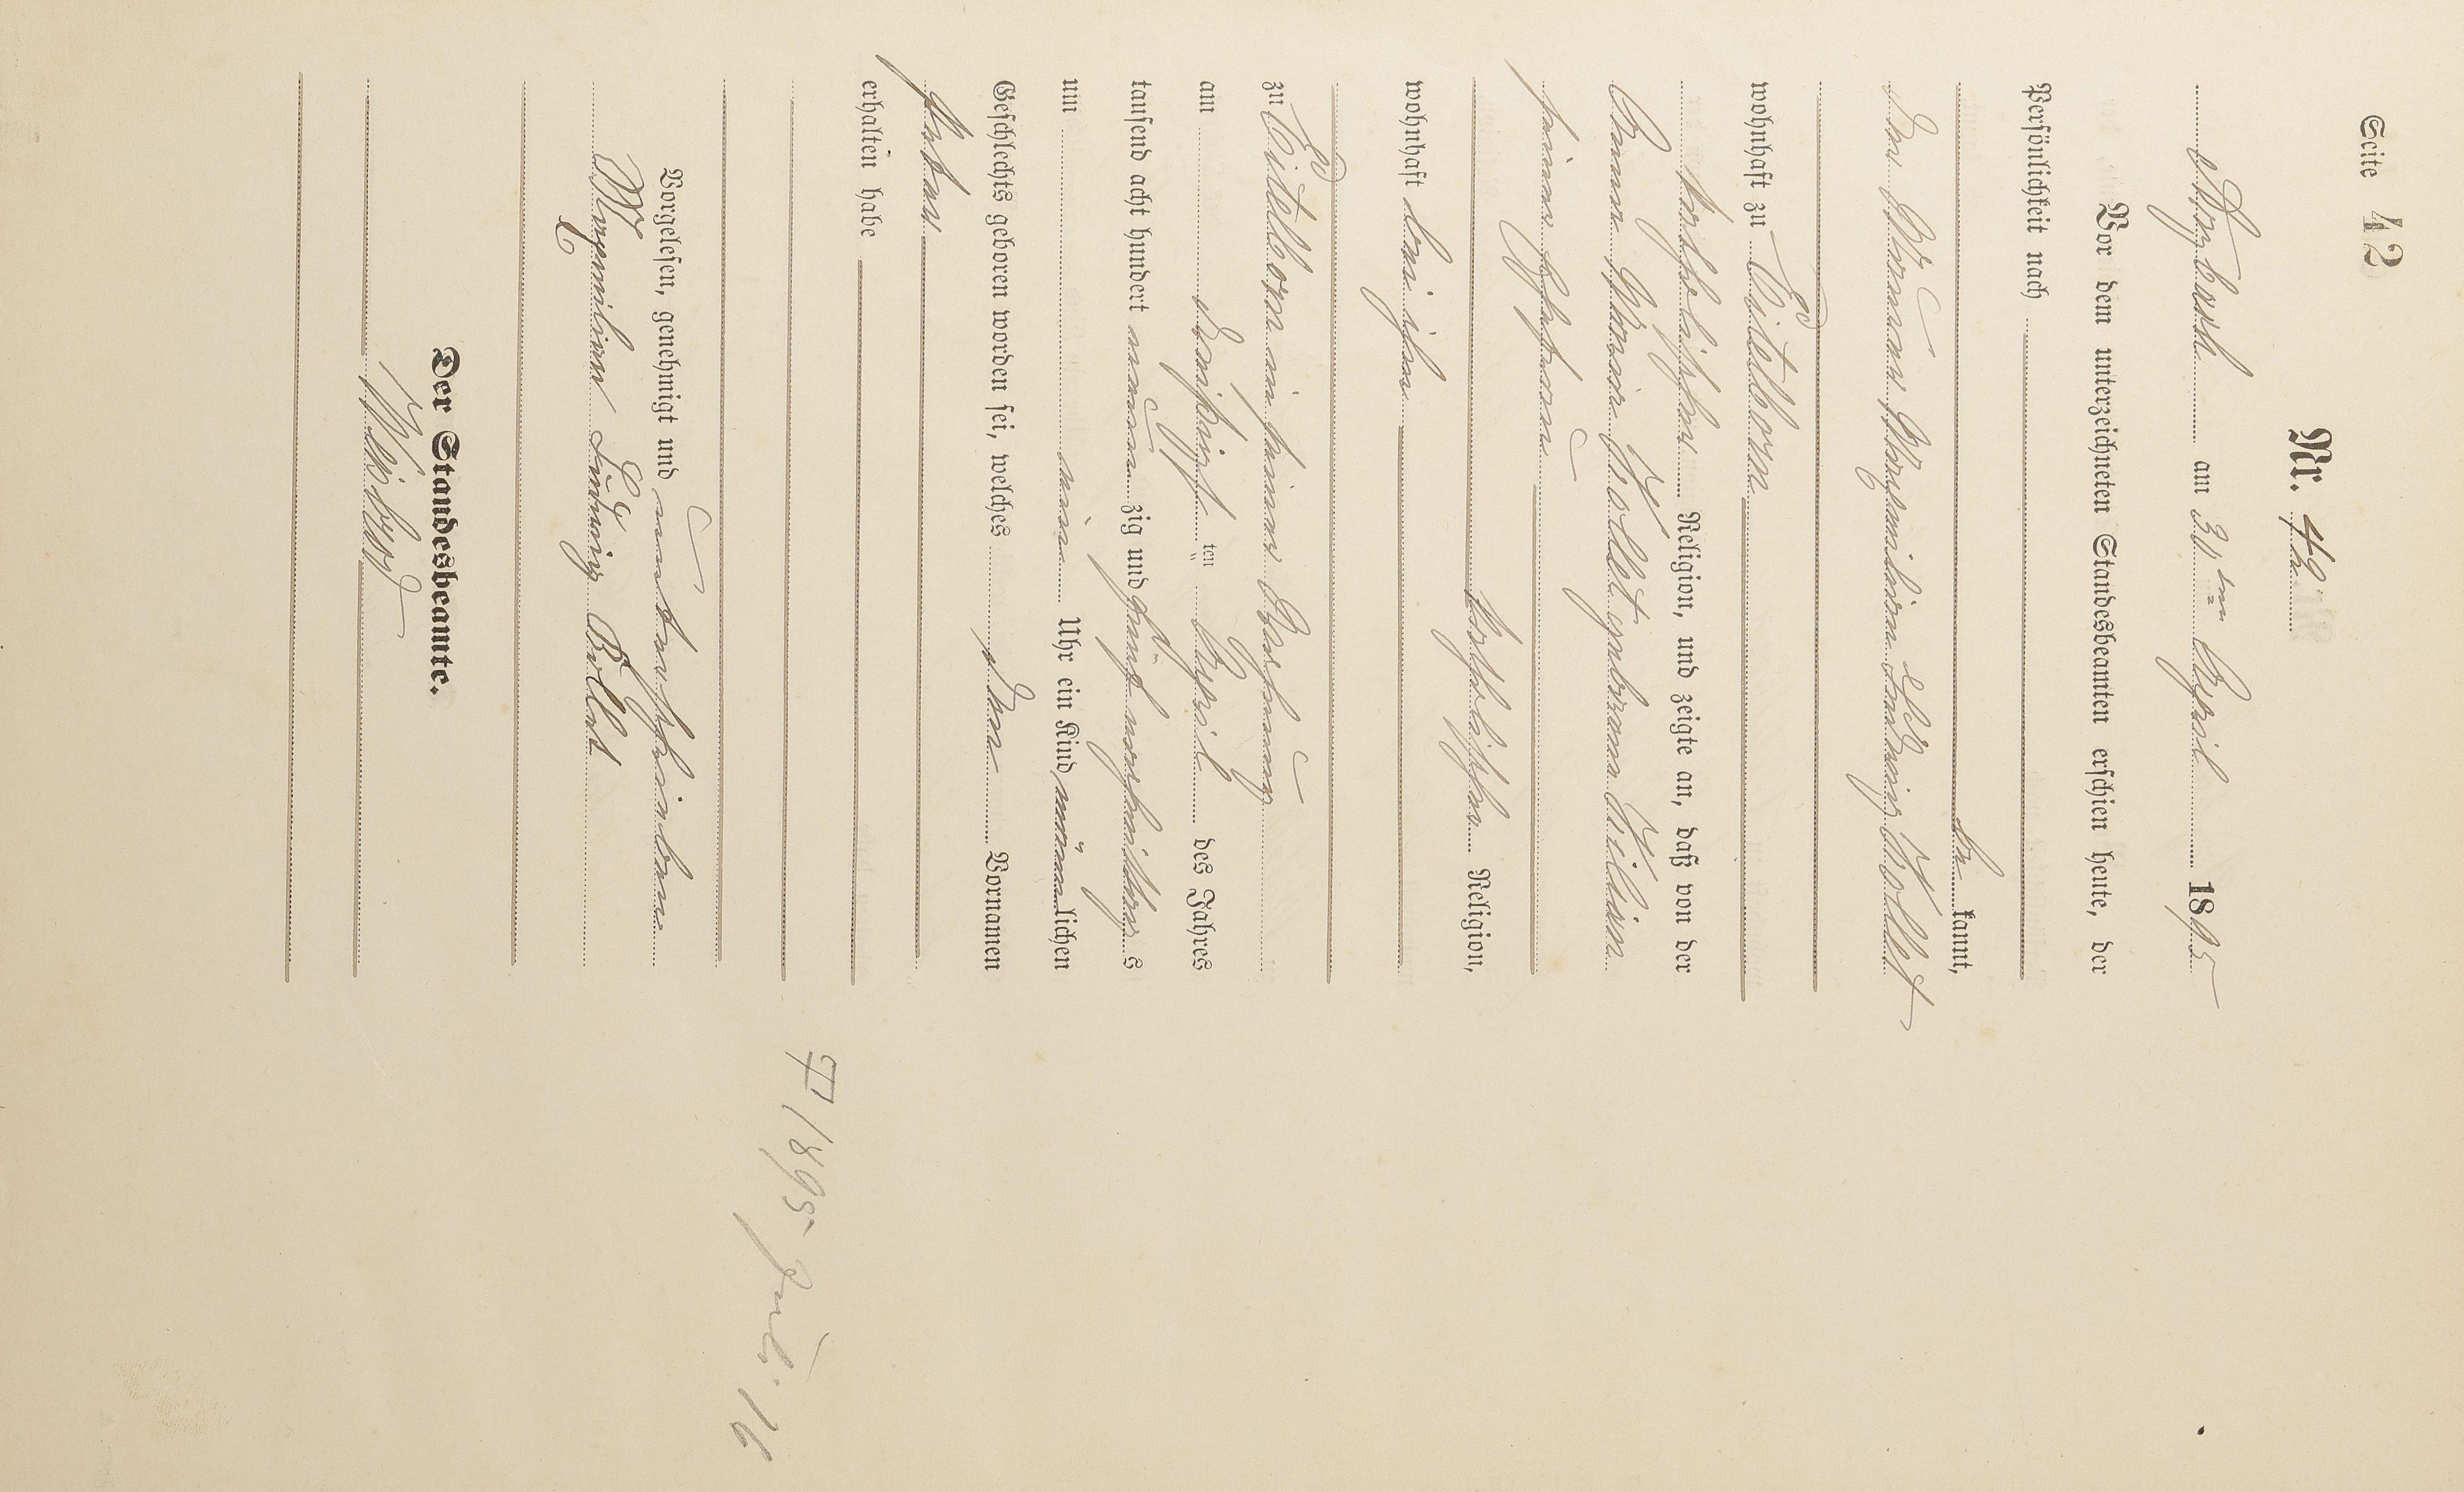 Seite 42
Nr. 42
Arzbach am 30ten April 1895
Vor dem unterzeichneten Standesbeamten erschien heute, der
Persönlichkeit nach
be kannt,
der Maurer Maximilian Ludwig Kollet
wohnhaft zu Eitelborn
katholischer Religion, und zeigte an, daß von der
Anna Maria Kollet geborenen Kilian
seiner Ehefrau
katholischer Religion,
wohnhaft bei ihm
zu Eitelborn in seiner Behausung
am dreißigsten April des Jahres
tausend acht hundert neun zig und fünf vormittags
um Uhr ein Kind männlichen
Geschlechts geboren worden sei, welches den Vornamen
Peter
erhalten habe
† 1895 Juli 16
Vorgelesen, genehmigt und unterschrieben
Maximilian Ludwig
Der Standesbeamte.
Weisbrod